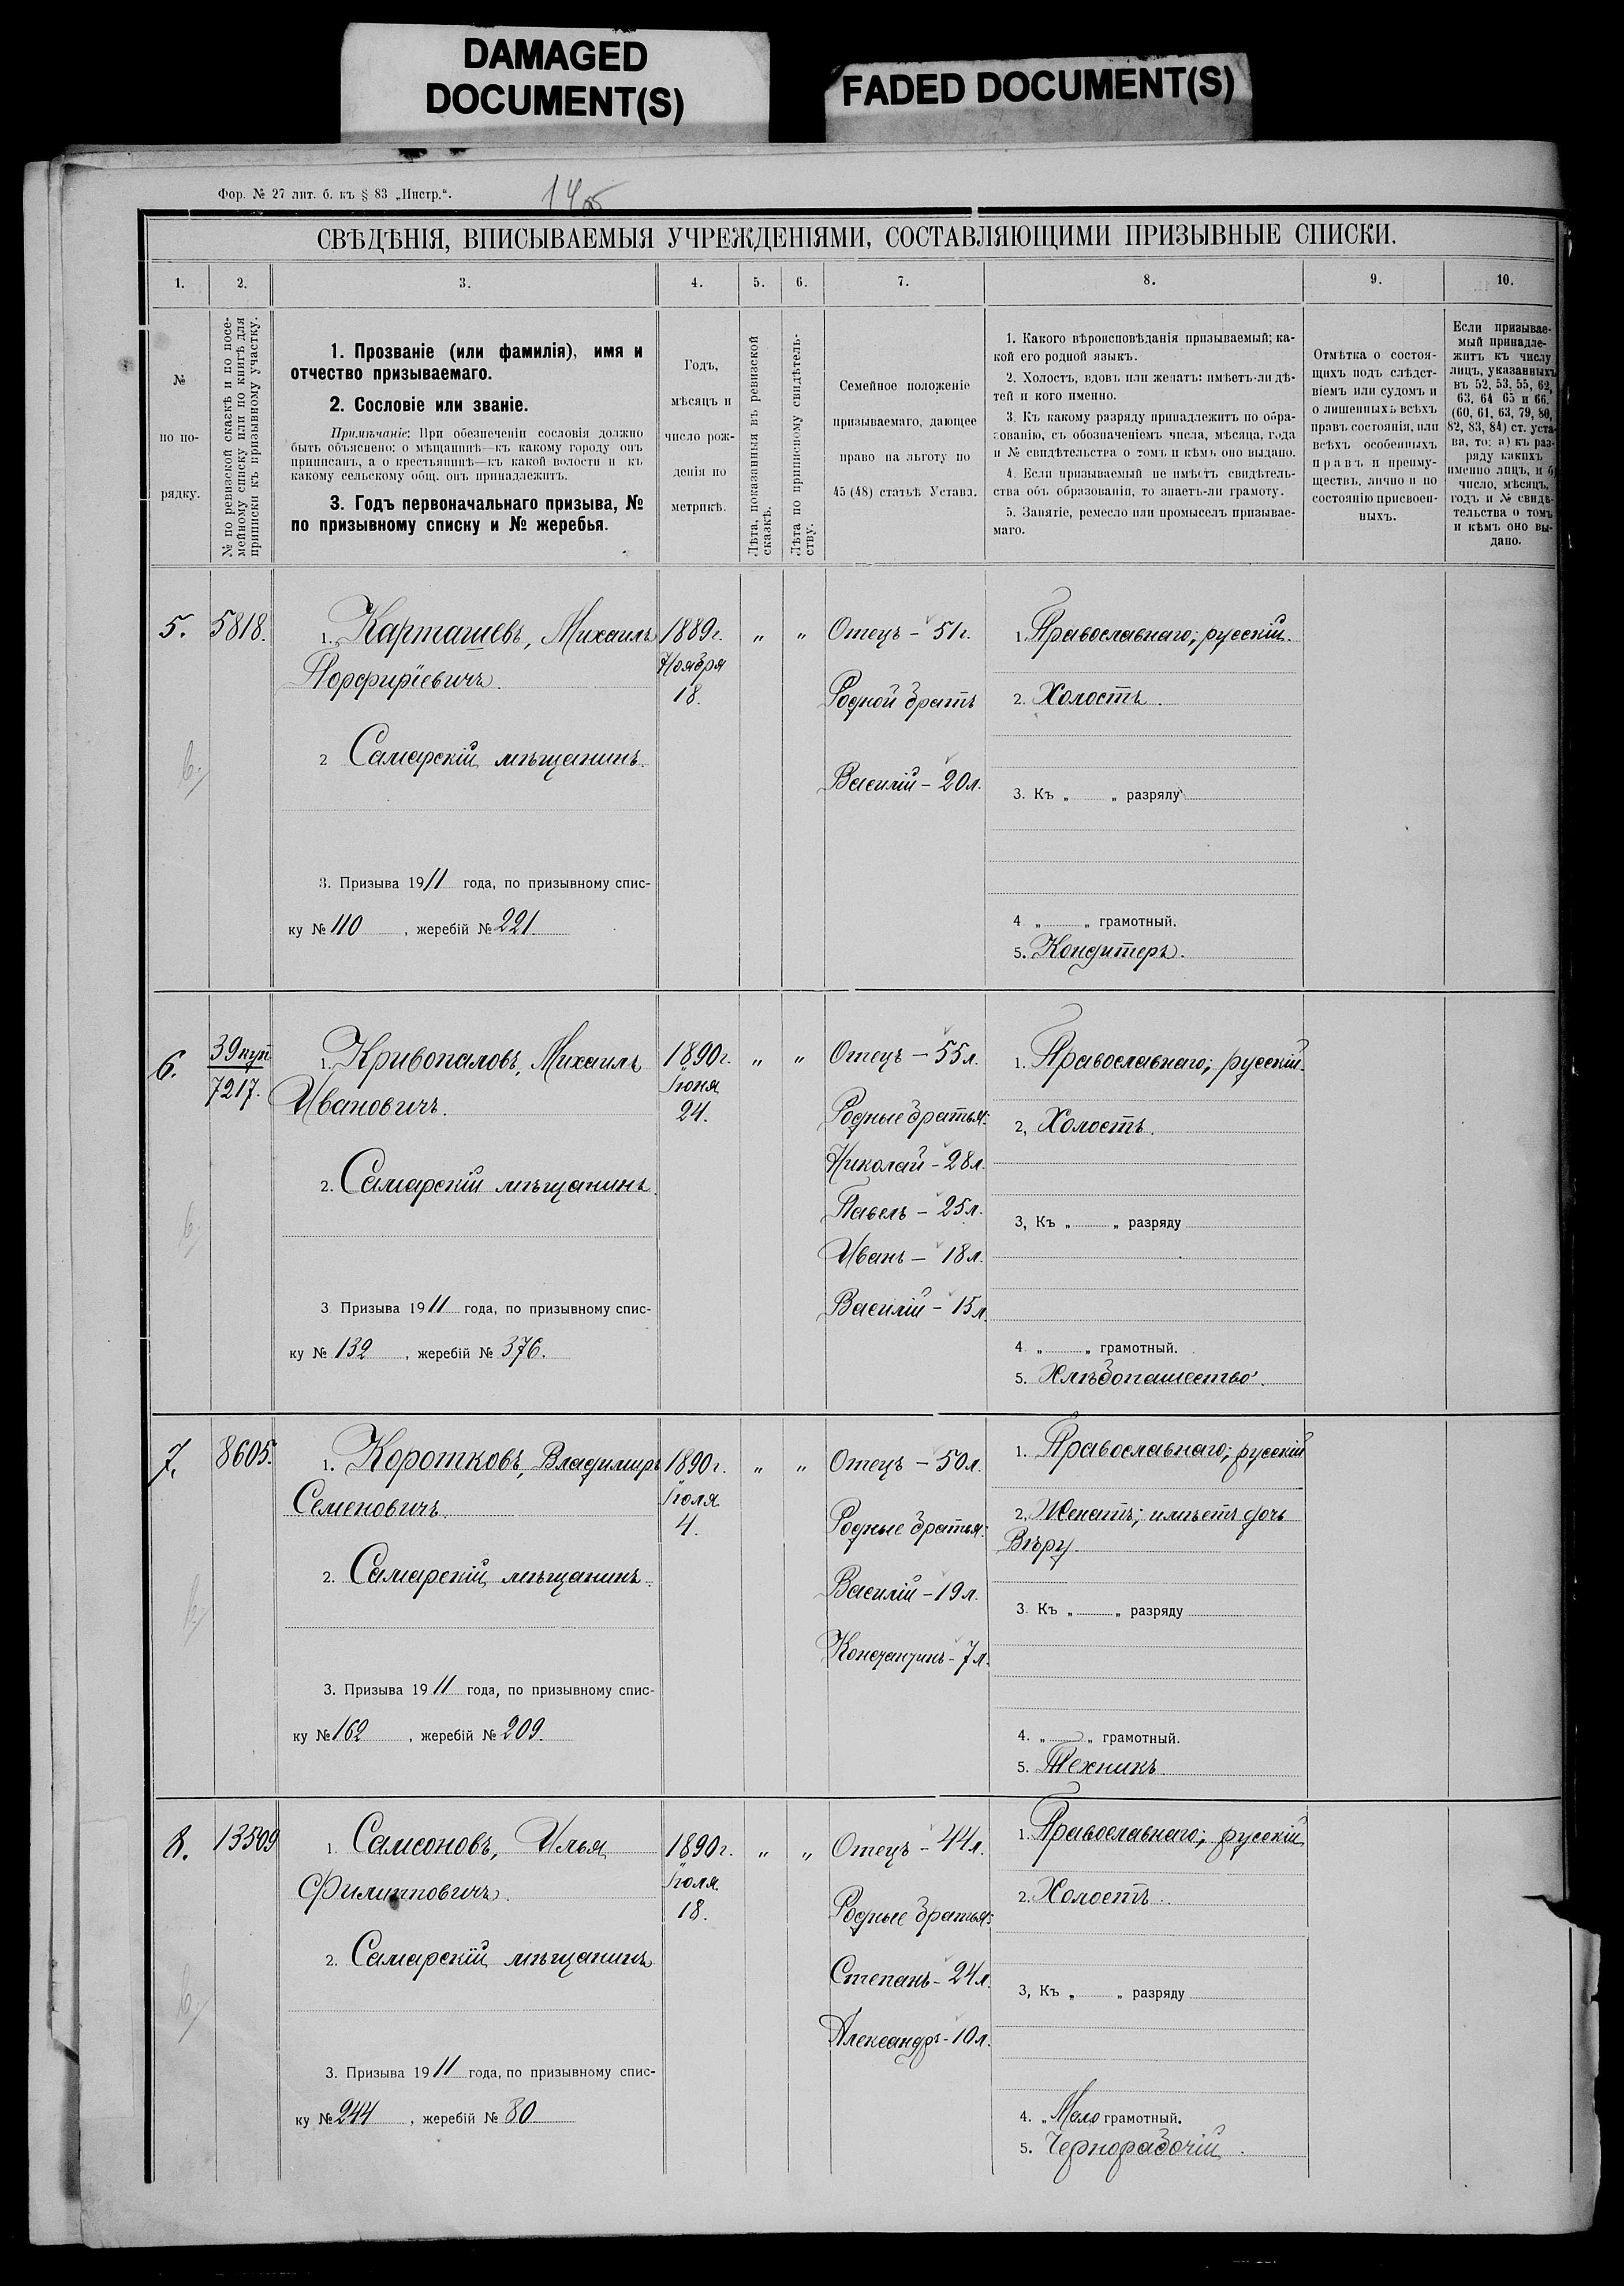 DAMAGED
DOCUMENT(S)
FADED DOCUMENT(S)
Фор. № 27 лит. б. къ § 83 „Инстр.“.
СВѢДѢНІЯ, ВПИСЫВАЕМЫЯ УЧРЕЖДЕНІЯМИ, СОСТАВЛЯЮЩИМИ ПРИЗЫВНЫЕ СПИСКИ.
1. 2. 3. 4. 5. 6. 7. 8. 9. 10.
№
по по-
рядку.
№ по ревизской сказкѣ и по посе-
мейному списку или по книгѣ для
приписки къ призывному участку.
1. Прозваніе (или фамилія), имя и
отчество призываемаго.
2. Сословіе или званіе.
Примѣчаніе: При обезпеченіи сословія должно
быть объяснено: о мѣщанинѣ—къ какому городу онъ
приписанъ, а о крестьянинѣ—къ какой волости и къ
какому сельскому общ. онъ принадлежитъ.
3. Годъ первоначальнаго призыва, №
по призывному списку и № жеребья.
Годъ,
мѣсяцъ и
число рож-
денія по
метрикѣ.
Лѣта, показанныя въ ревизской
сказкѣ.
Лѣта по приписному свидѣтель-
ству.
Семейное положеніе
призываемаго, дающее
право на льготу по
45 (48) статьѣ Устава.
1. Какого вѣроисповѣданія призываемый; ка-
кой его родной языкъ.
2. Холостъ, вдовъ или женатъ: имѣетъ-ли дѣ-
тей и кого именно.
3. Къ какому разряду принадлежитъ по обра-
зованію, съ обозначеніемъ числа, мѣсяца, года
и № свидѣтельства о томъ и кѣмъ оно выдано.
4. Если призываемый не имѣетъ свидѣтель-
ства объ образованіи, то знаетъ-ли грамоту.
5. Занятіе, ремесло или промыселъ призывае-
маго.
Отмѣтка о состоя-
щихъ подъ слѣдст-
віемъ или судомъ и
о лишенныхъ всѣхъ
правъ состоянія, или
всѣхъ особенныхъ
правъ и преиму-
ществъ, лично и по
состоянію присвоен-
ныхъ.
Если призывае-
мый принадле-
житъ къ числу
лицъ, указанныхъ
въ 52, 53, 55, 62,
63, 64 65 и 66.
(60, 61, 63, 79, 80,
82, 83, 84) ст. уста-
ва, то: а) къ раз-
ряду какихъ
именно лицъ, и б)
число, мѣсяцъ,
годъ и № свидѣ-
тельства о томъ
и кѣмъ оно вы-
дано.
5. 5818.
1. Карташевъ, Михаилъ
Порфиріевичъ.
2 Самарскій мѣщанинъ.
3. Призыва 1911 года, по призывному спис-
ку № 110, жеребій № 221.
1889г.
Ноября
18.
„ „
Отецъ – 51г.
Родной братъ
Василій – 20л.
1. Православнаго; русскій.
2. Холостъ.
3. Къ „ „ разряду
4 „ „ грамотный.
5. Кондитеръ.
6. 39 куп.
7217.
1. Кривопаловъ, Михаилъ
Ивановичъ.
2. Самарскій мѣщанинъ.
3 Призыва 1911 года, по призывному спис-
ку № 132, жеребій № 376.
1890г.
Іюня
24.
„ „
Отецъ – 55л.
Родные братья:
Николай – 28л.
Павелъ – 25л.
Иванъ – 18л.
Василій – 15л.
1. Православнаго; русскій.
2, Холостъ.
3, Къ „ „ разряду
4 „ „ грамотный.
5. Хлѣбопашество.
7. 8605.
1. Коротковъ, Владимиръ
Семеновичъ.
2. Самарскій мѣщанинъ.
3. Призыва 1911 года, по призывному спис-
ку № 162, жеребій № 209.
1890г.
Іюля
4.
„ „
Отецъ – 50л.
Родные братья:
Василій – 19л.
Константинъ – 7л.
1. Православнаго; русскій
2, Женатъ; имѣетъ дочь
Вѣру.
3. Къ „ „ разряду
4. „ „ грамотный.
5. Техникъ.
8. 13509
1. Самсоновъ, Илья
Филипповичъ.
2. Самарскій мѣщанинъ
3. Призыва 1911 года, по призывному спис-
ку № 244, жеребій № 80.
1890г.
Іюля
18.
„ „
Отецъ – 44л.
Родные братья:
Степанъ – 24л.
Александръ – 10л.
1. Православнаго; русскій
2. Холостъ.
3, Къ „ „ разряду
4. „Мало грамотный.
5. Чернорабочій.